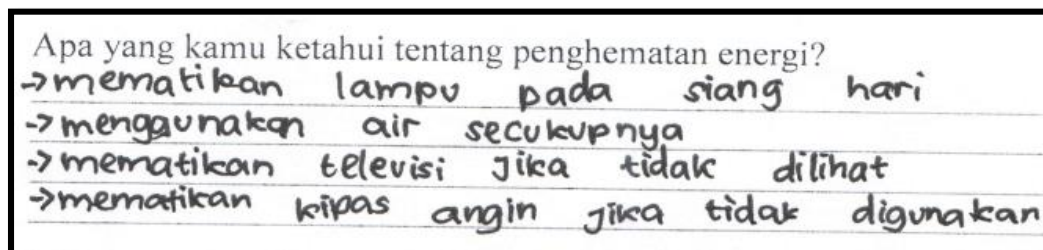 Apa yang kamu ketahui tentang penghematan energi?
→mematikan lampu pada siang hari
→menggunakan air secukupnya
→mematikan televisi Jika tidak dilihat
→mematikan kipas angin jika tidak digunakan